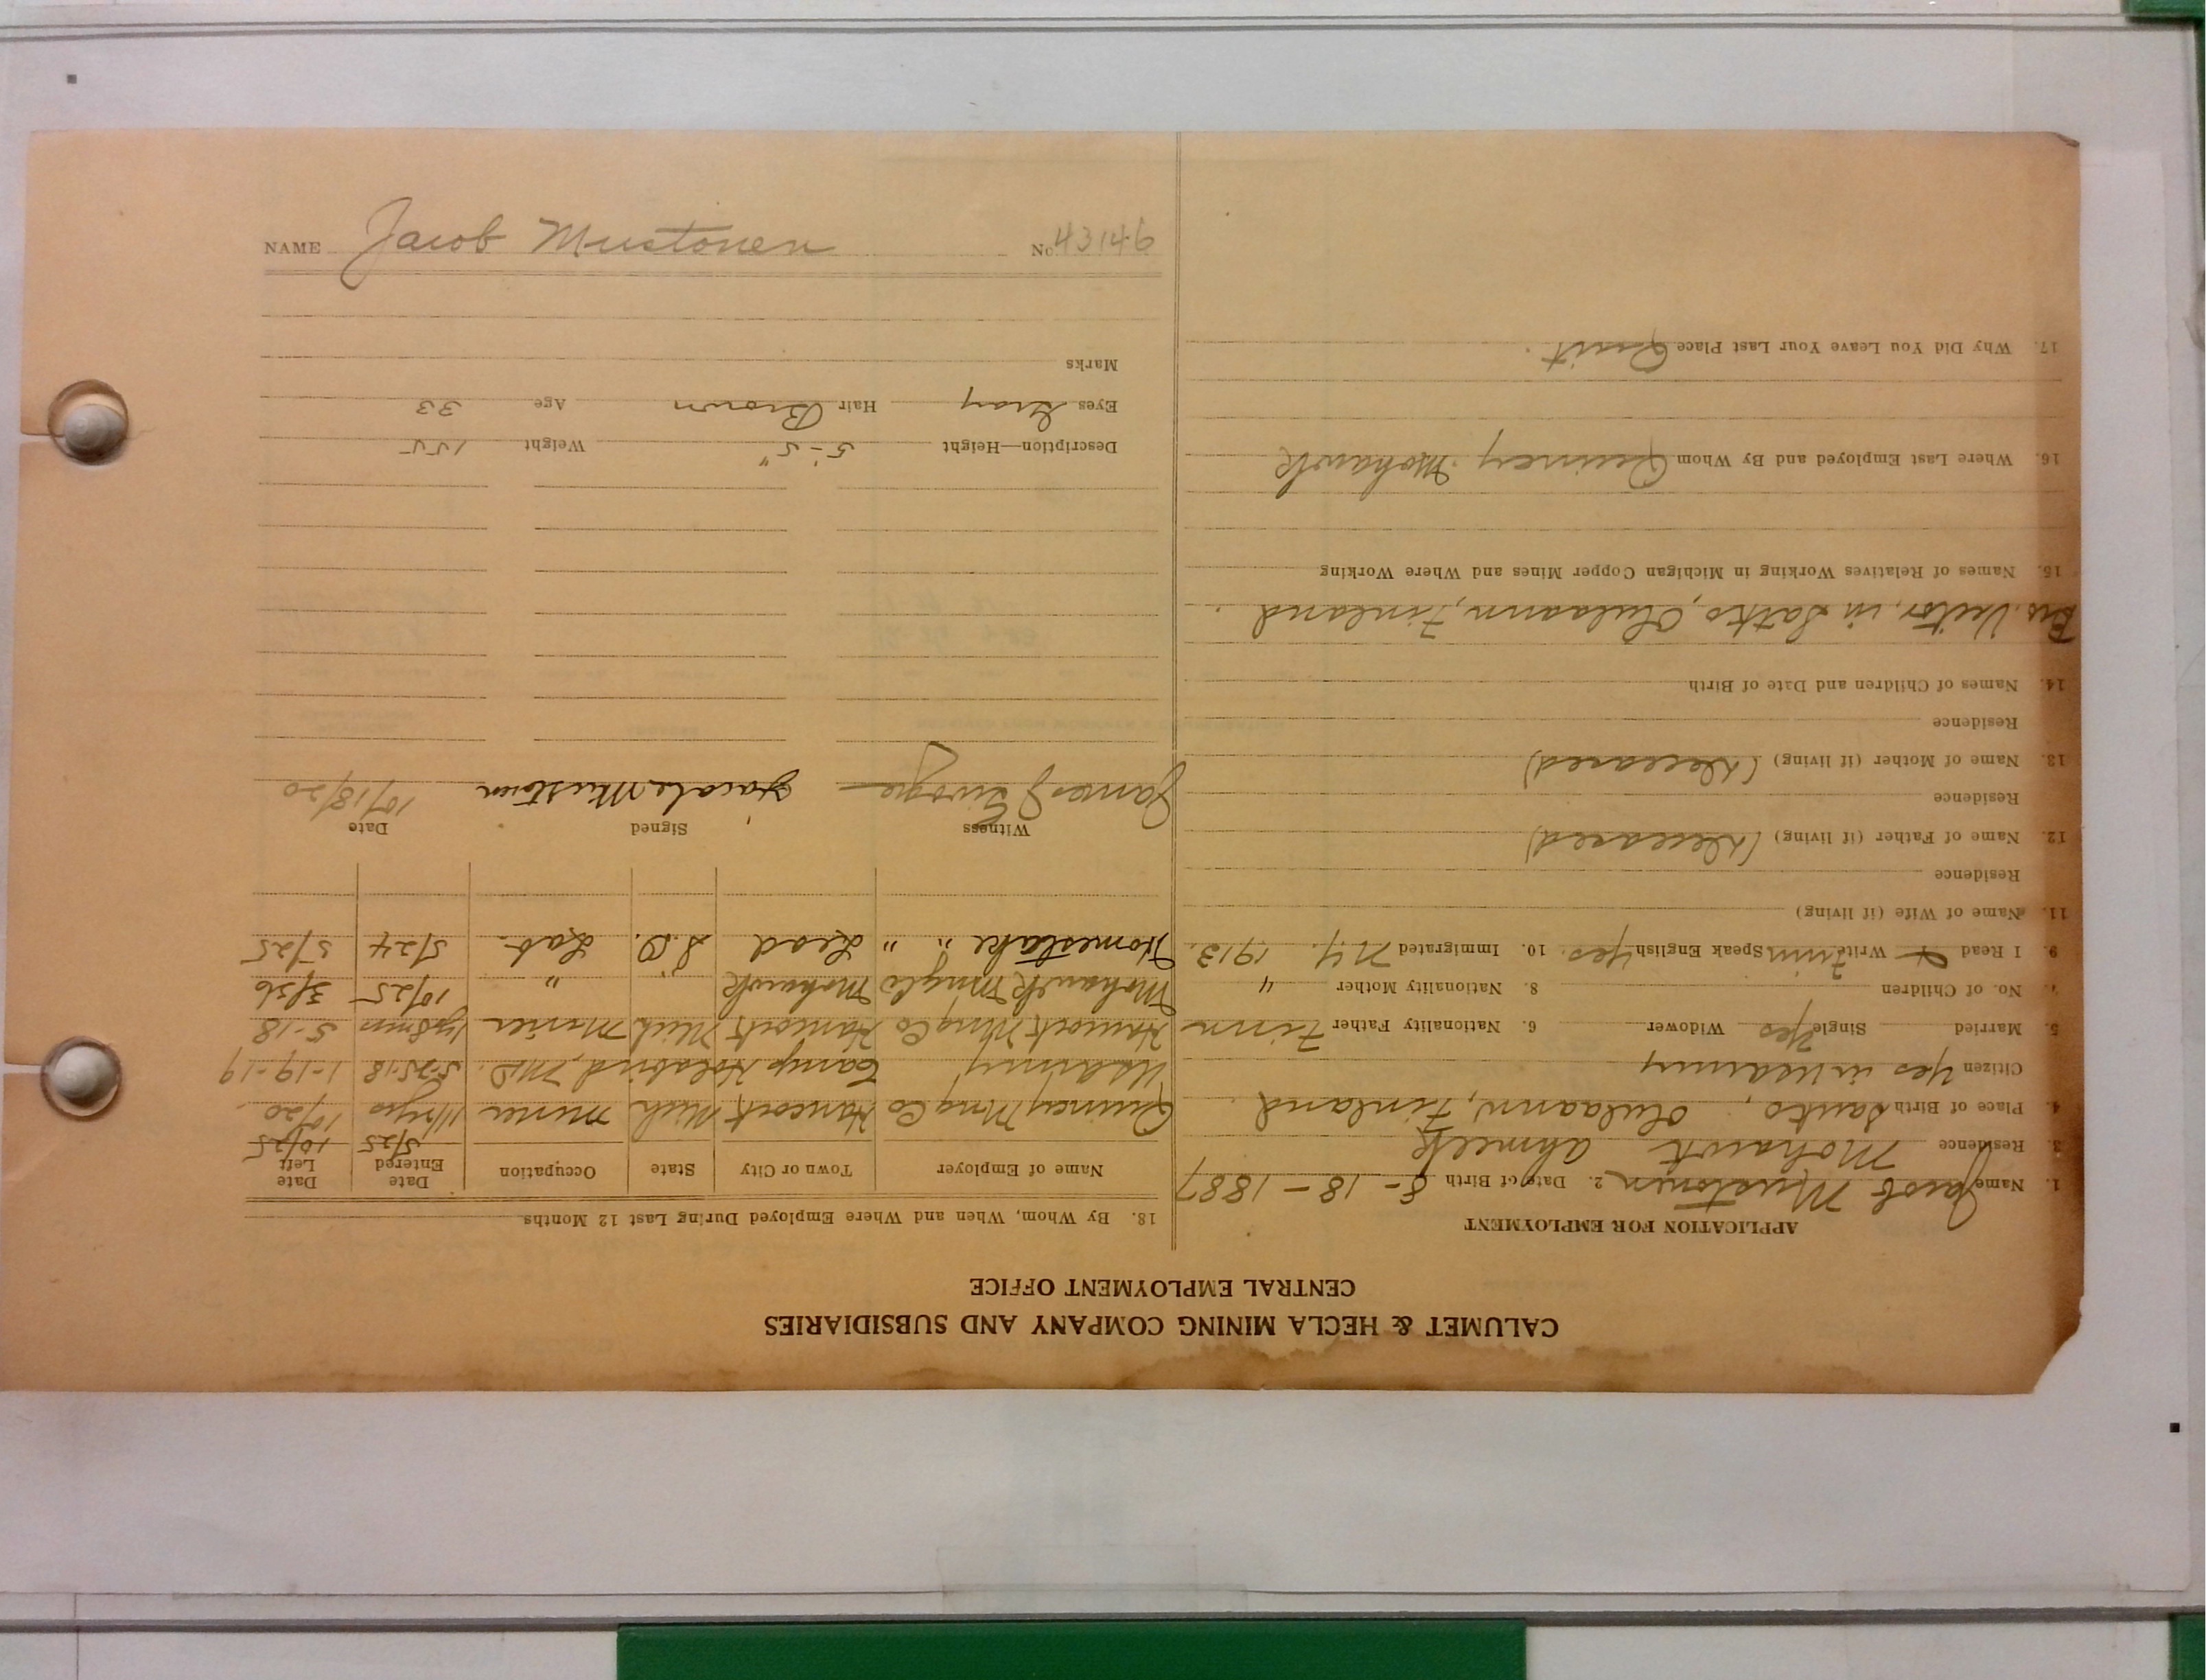 CALUMET & HECLA MINING COMPANY AND SUBSIDIARIES
CENTRAL EMPLOYMENT OFFICE
APPLICATION FOR EMPLOYMENT
1. Name Jacob Mustonen 2. Date of Birth 8-18-1887
3. Residence Mohawk Ahmeek
4. Place of Birth Oulaann, Finland
Citizen Yes in
5. Married Single Yes Widower 6. Nationality Father Finn
7. No. of Children 8. Nationality Mother "
9. I Read & Write Finn Speak English Yes. 10. Immigrated N.Y. 1913.
11. Name of Wife (if living)
Residence
12. Name of Father (if living) (Deceased)
Residence
13. Name of Mother (if living) (Deceased)
Residence
14. Names of Children and Date of Birth
Bro. Victor, in Oulaann, Finland
15. Names of Relatives Working in Michigan Copper Mines and Where Working
16. Where Last Employed and By Whom Quincy Mohawk
17. Why Did You Leave Your Last Place Quit.
18. By Whom, When and Where Employed During Last 12 Months
Name of Employer Town or City State Occupation Date Entered Date Left
5/25 10/25
Quincy Mng Co Hancock Mich miner 10/20
US Army Camp N.D. 5-25-18 1-19-19
Hancock Mng Co Hancock Mich Miner 5-18
Mohawk Mng Co Mohawk " " 10/25 3/36
Homestake " " Lead S.D. Lab. 5/24 5/25
Witness Signed Date
James Jacob Mustonen 10/18/20
Description—Height 5'-5" Weight 155
Eyes Gray Hair Brown Age 33
Marks
NAME Jacob Mustonen No. 43146